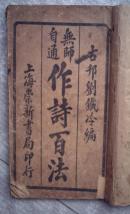 古邗劉鐵冷編
無師自通
作詩百法
上海崇新書局印行